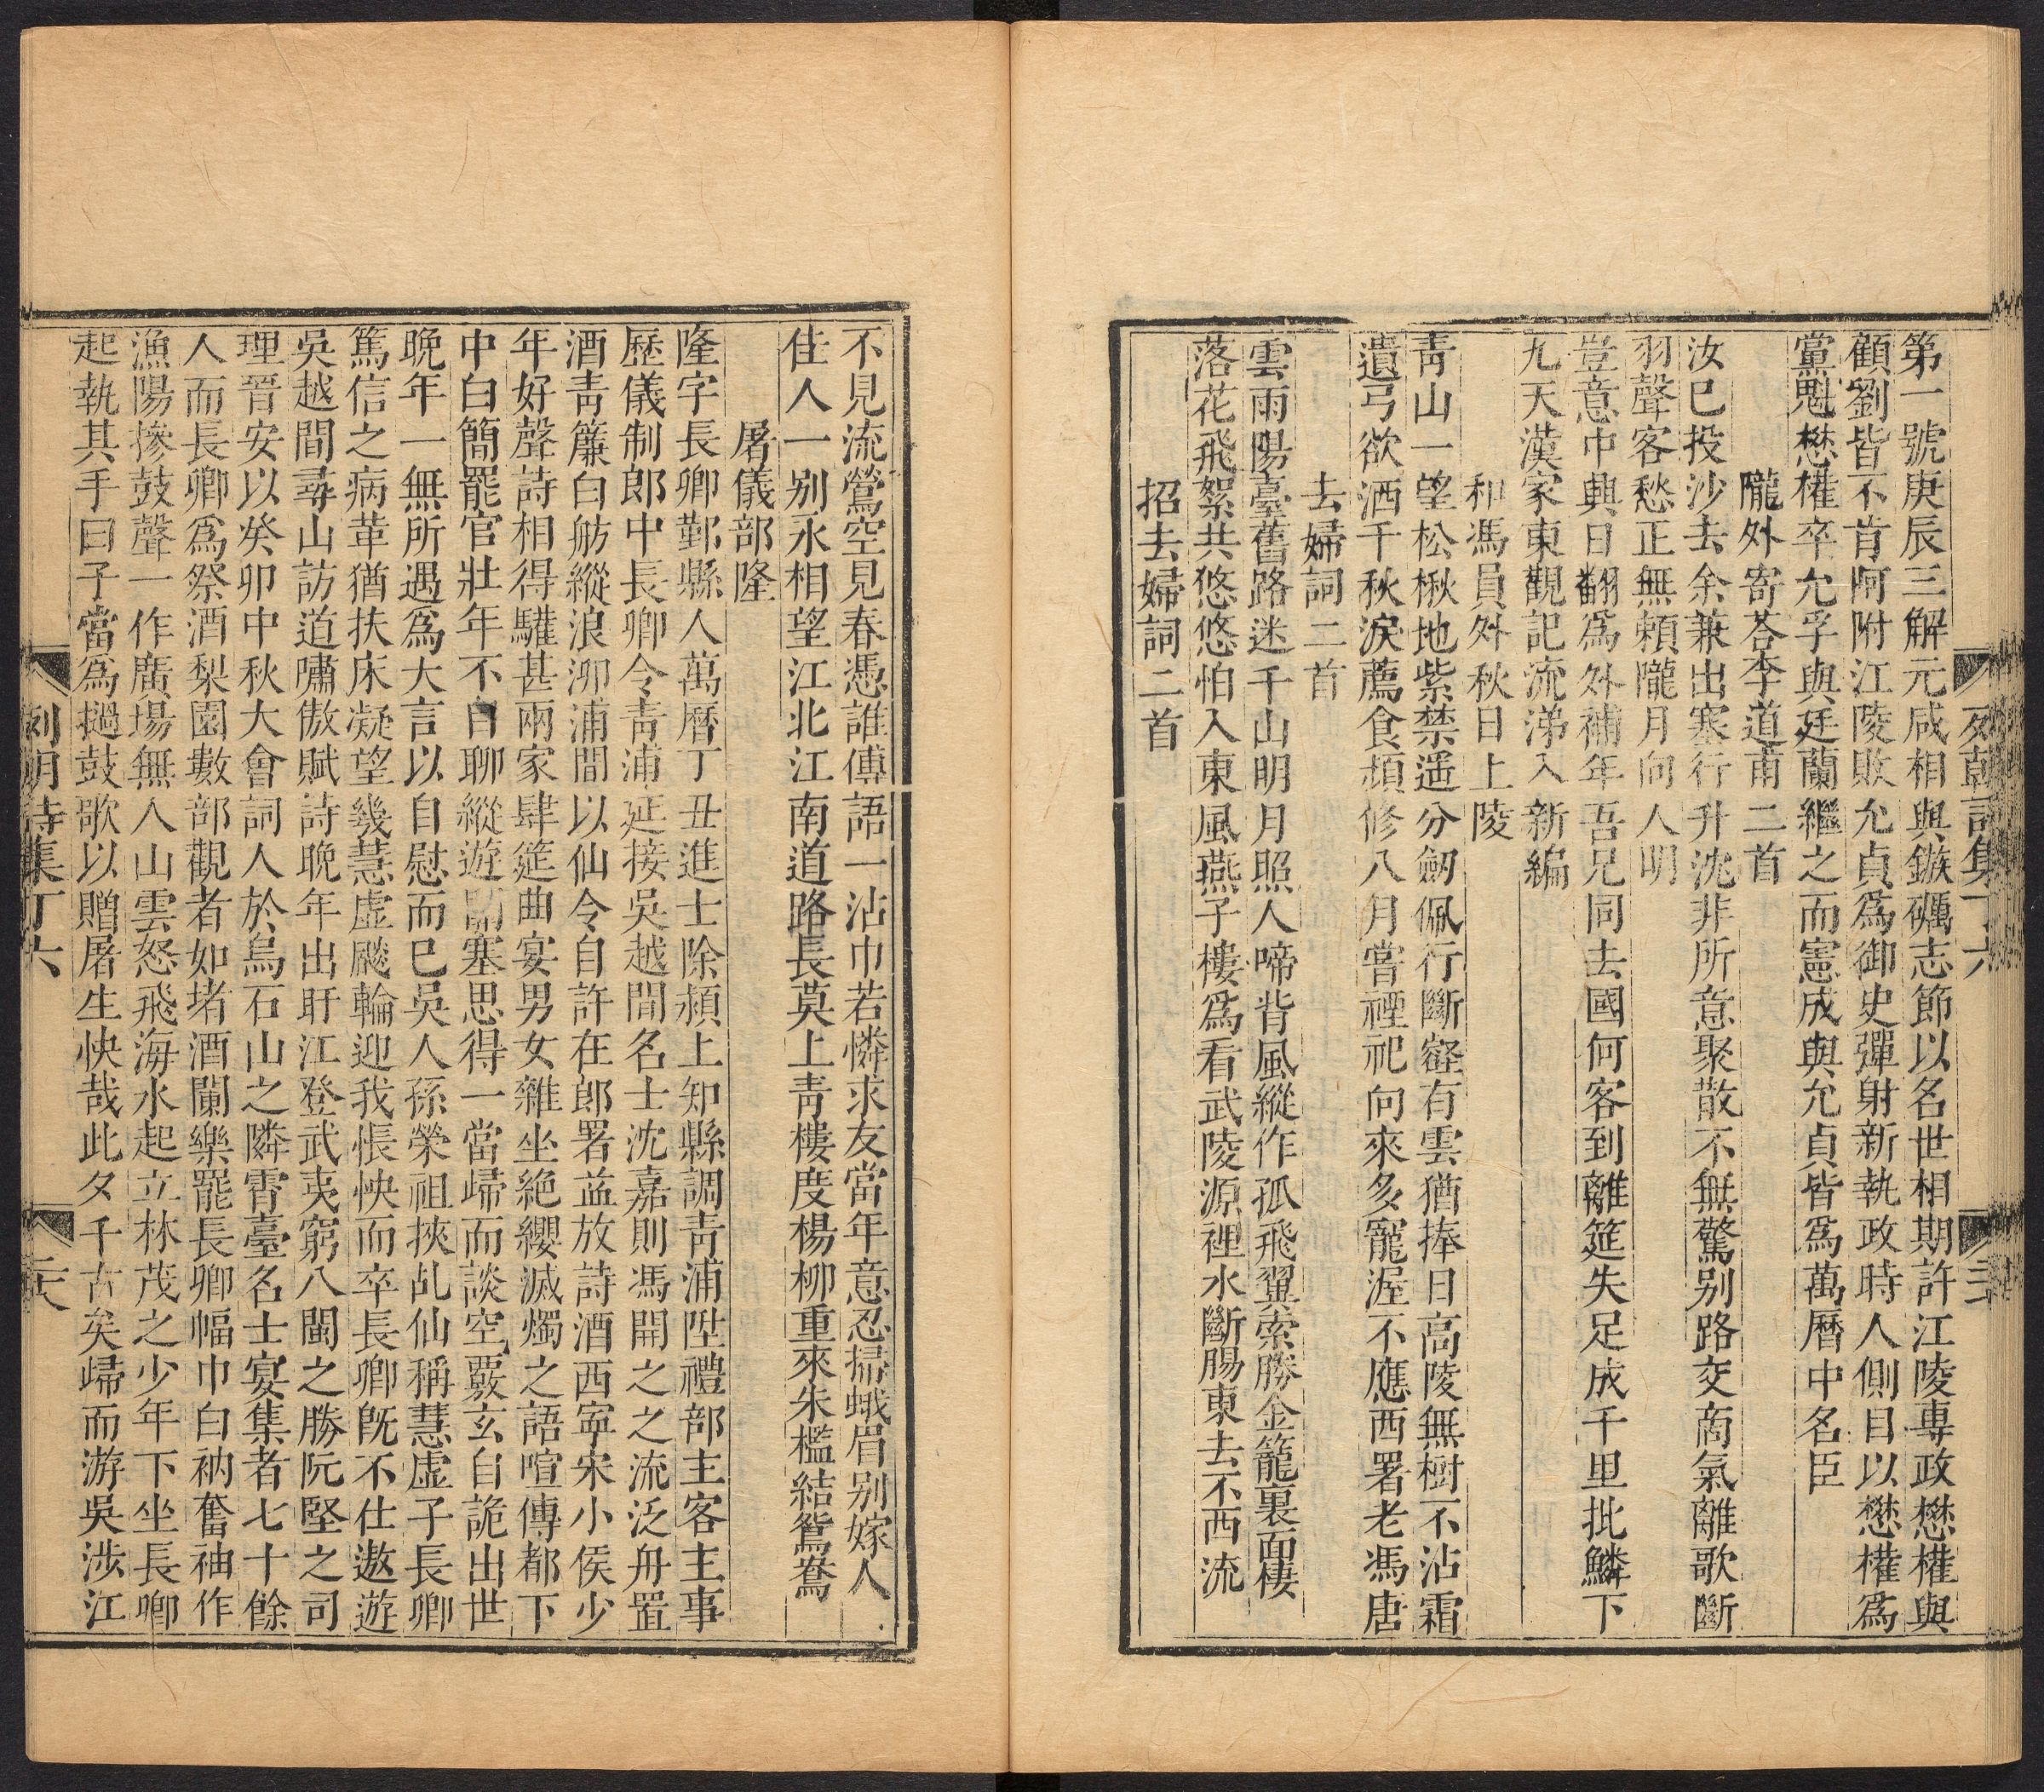 第一號庚辰三解元咸相與鏃礪志節以名世相期許江陵專政懋權與
顧劉皆不肯阿附江陵敗允貞爲御史彈射新執政時人側目以懋權爲
黨魁懋權卒允孚與廷蘭繼之而憲成與允貞皆爲萬曆中名臣
隴外寄荅李道甫二首
汝已投沙去余兼出塞行升沈非所意聚散不無驚别路交啇氣離歌斷
羽聲客愁正無頼隴月向人明
豈意中興日翻爲外補年吾兄同去國何客到離筵失足成千里批鱗下
九天漢家東觀記流涕入新編
和馮員外秋日上陵
青山一望松楸地紫禁遥分劒佩行斷壑有雲猶捧日高陵無樹不沾霜
遺弓欲洒千秋淚薦食頻修八月嘗禋祀向來多寵渥不應西署老馮唐
去婦詞二首
雲雨陽臺舊路迷千山明月照人啼背風縱作孤飛翼索勝金籠裏面棲
落花飛絮共悠悠怕入東風燕子樓爲看武陵源裡水斷腸東去不西流
招去婦詞二首
列朝詩集丁六
不見流鶯空見春憑誰傳語一沾巾若憐求友當年意忍掃蛾眉别嫁人
佳人一别永相望江北江南道路長莫上青樓度楊柳重來朱檻結鴛鴦
屠儀部隆
隆字長卿鄞縣人萬曆丁丑進士除潁上知縣調青浦陞禮部主客主事
歷儀制郎中長卿令青浦延接吳越間名士沈嘉則馮開之之流泛舟置
酒青簾白舫縱浪泖浦間以仙令自許在郎署益放詩酒西寜宋小侯少
年好聲詩相得驩甚兩家肆筵曲宴男女雜坐絶纓滅燭之語喧傳都下
中白簡罷官壯年不自聊縱遊關塞思得一當歸而談空覈玄自詭出世
晚年一無所遇爲大言以自慰而已吳人孫榮祖挾乩仙稱慧虚子長卿
篤信之病革猶扶床凝望幾慧虚飈輪迎我悵怏而卒長卿旣不仕遨遊
吳越間尋山訪道嘯傲賦詩晚年出盱江登武夷窮八閩之勝阮堅之司
理晉安以癸卯中秋大會詞人於烏石山之隣霄臺名士宴集者七十餘
人而長卿爲祭酒梨園數部觀者如堵酒闌樂罷長卿幅巾白衲奮袖作
漁陽摻鼓聲一作廣塲無人山雲怒飛海水起立林茂之少年下坐長卿
起執其手曰子當爲撾鼓歌以贈屠生快哉此夕千古矣歸而游吳涉江
列朝詩集丁六